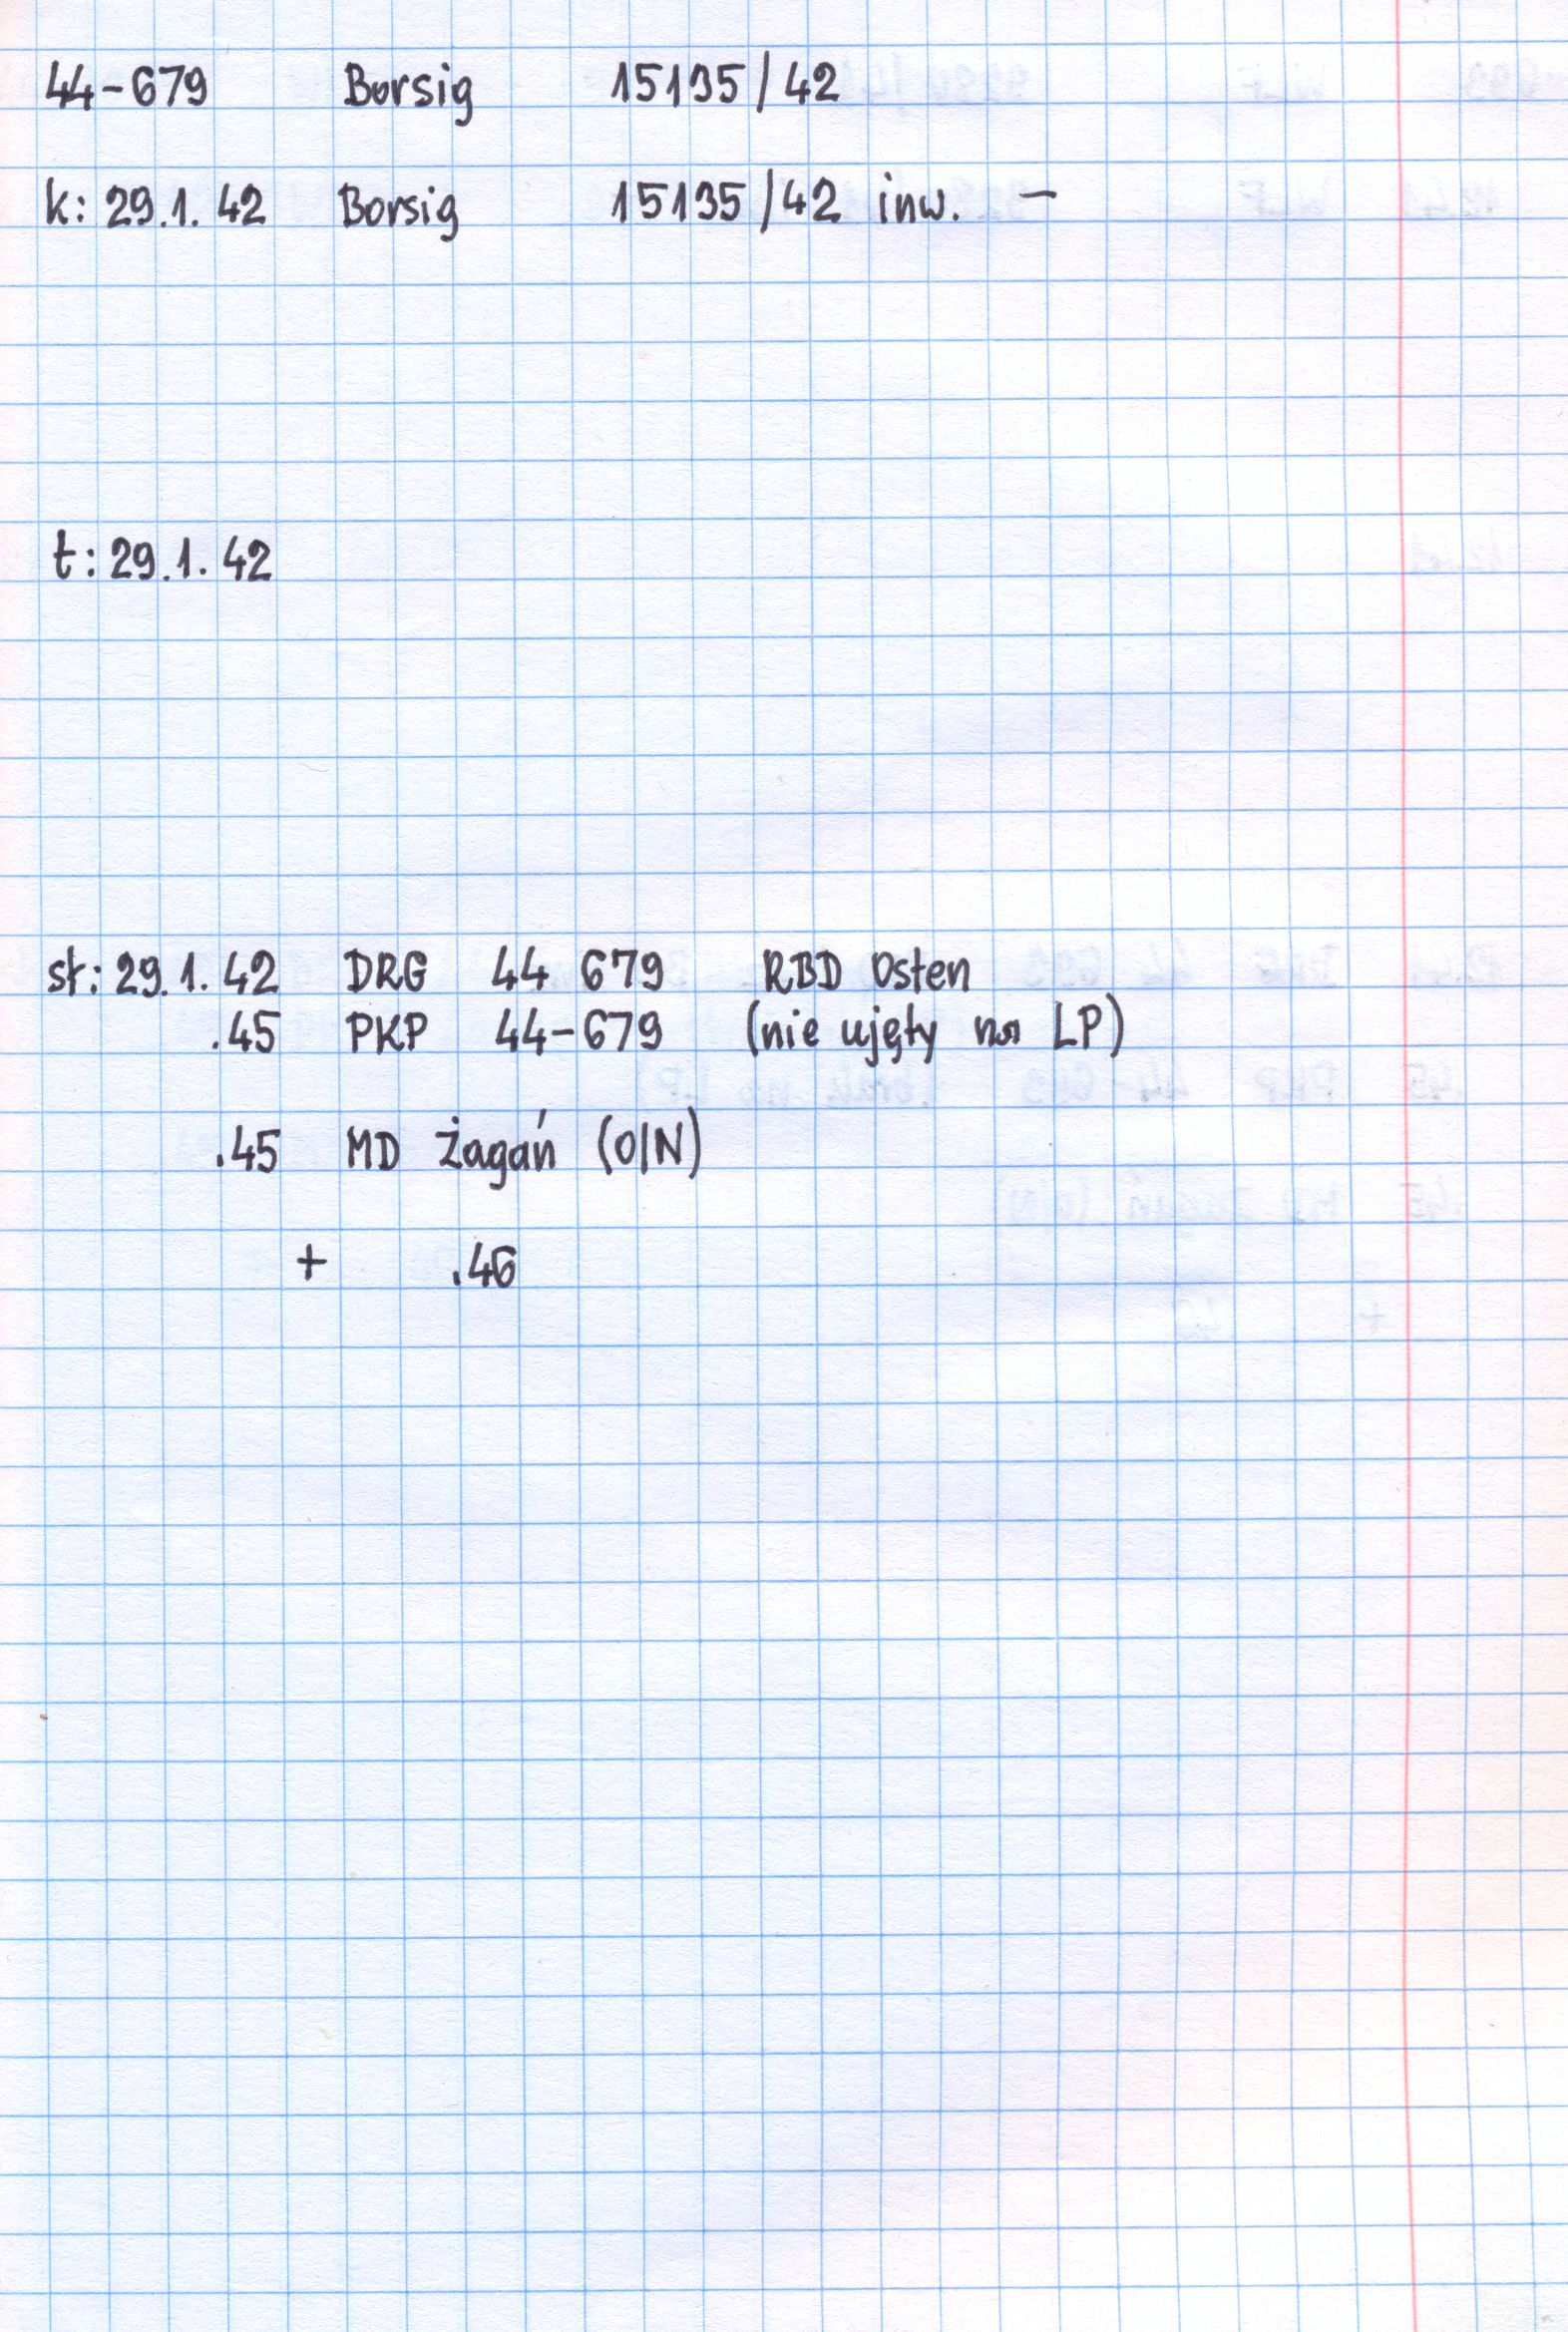 44-679 Borsig 15195/42
k: 29.1.42 Borsig 15195/42 inw. —
t: 29.1.42
st: 29.1.42 DRG 44 679 RBD Osten
.45 PKP 44-679 (nie ujęty na LP)
.45 MD Żagań (O/N)
+ .46